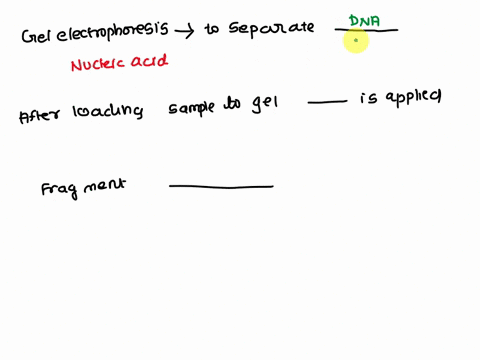 Gel electrophoresis → to separate DNA
Nucleic acid
After loading sample to gel ____ is applied
Fragment ________